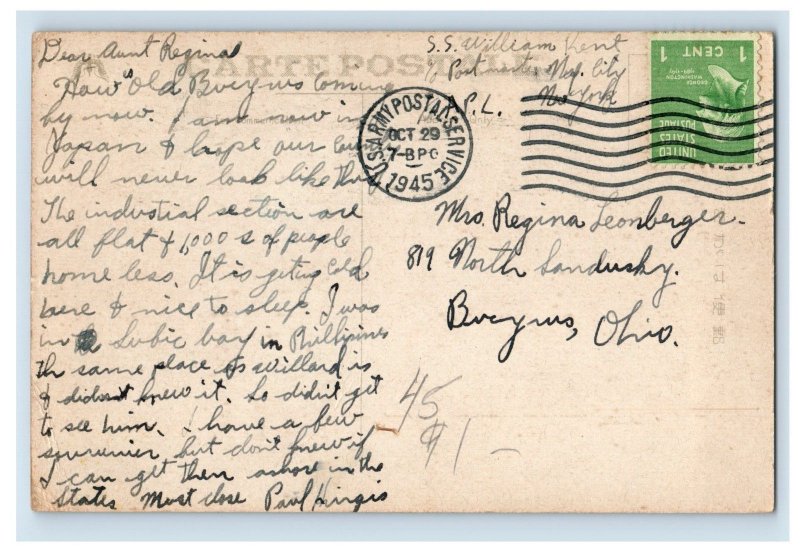 CARTE POSTALE
Dear Aunt Regina
How's Old Bucyrus coming
by now. I am now in
Japan & hope our
will never look like this
The industial section are
all flat & 1,000 s of people
homeless. It is geting cold
here & nice to sleep. I was
in Subic bay in Phillipines
th same place as Willard is
& didn't knew it. So didn't get
to see him. I have a few
souvenier but don't knew if
I can get them ashore in the
States Must close Paul Hingis
S.S. William Kent
% Postmaster, N.Y. City
New York
P.L.
U.S. ARMY POSTAL SERVICE
OCT 29
7-BPO
1945
1 CENT 1
GEORGE
WASHINGTON
1789-1797
UNITED
STATES
POSTAGE
Mrs. Regina Leonberger.
819 North Sandusky.
Bucyrus, Ohio.
郵便はかき
45
$1-